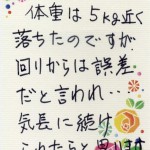 体重は5kg近く
落ちたのですが
回りからは誤差
だと言われ・・・
気長に続け
られたらと思います